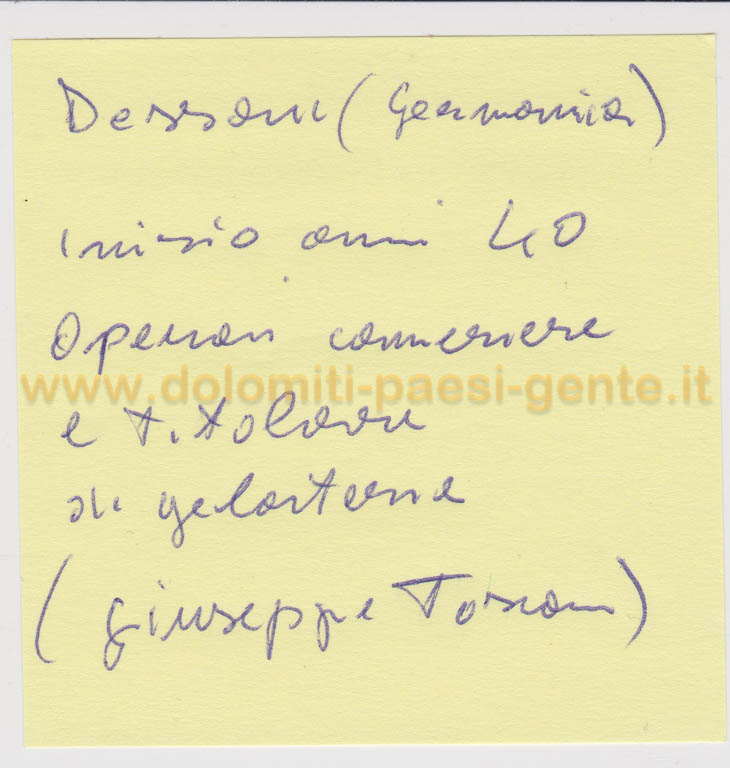 Dessau (Germania)
inizio anni 40
Operai cameriere
www.dolomiti-paesi-gente.it
e titolare
di gelateria
(Giuseppe Toscani)